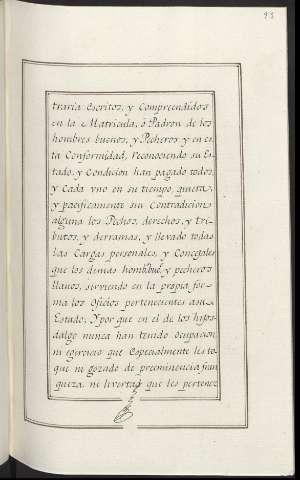 93
traria Escritos, y Compreendidos
en la Matricula, ó Padron de los
hombres buenos, y Pecheros y en es
ta Conformidad, reconosciendo su Es
tado, y Condicion han pagado todos,
y Cada vno en su tiempo, quieta,
y pacificamente sin Contradicion
alguna los Pechos, derechos, y tri
butos, y derramas, y llevado todas
las Cargas personales, y Concegales
que los demas homb.s bue.s y pecheros
llanos, sirviendo en la propia for
ma los Oficios pertenecientes asu
Estado; Y por que en el de los hijos
dalgo nunca han tenido ocupacion,
ni egercicio que Especialmente les to
que ni gozado de preeminencia fran
queza, ni livertad que les pertenez